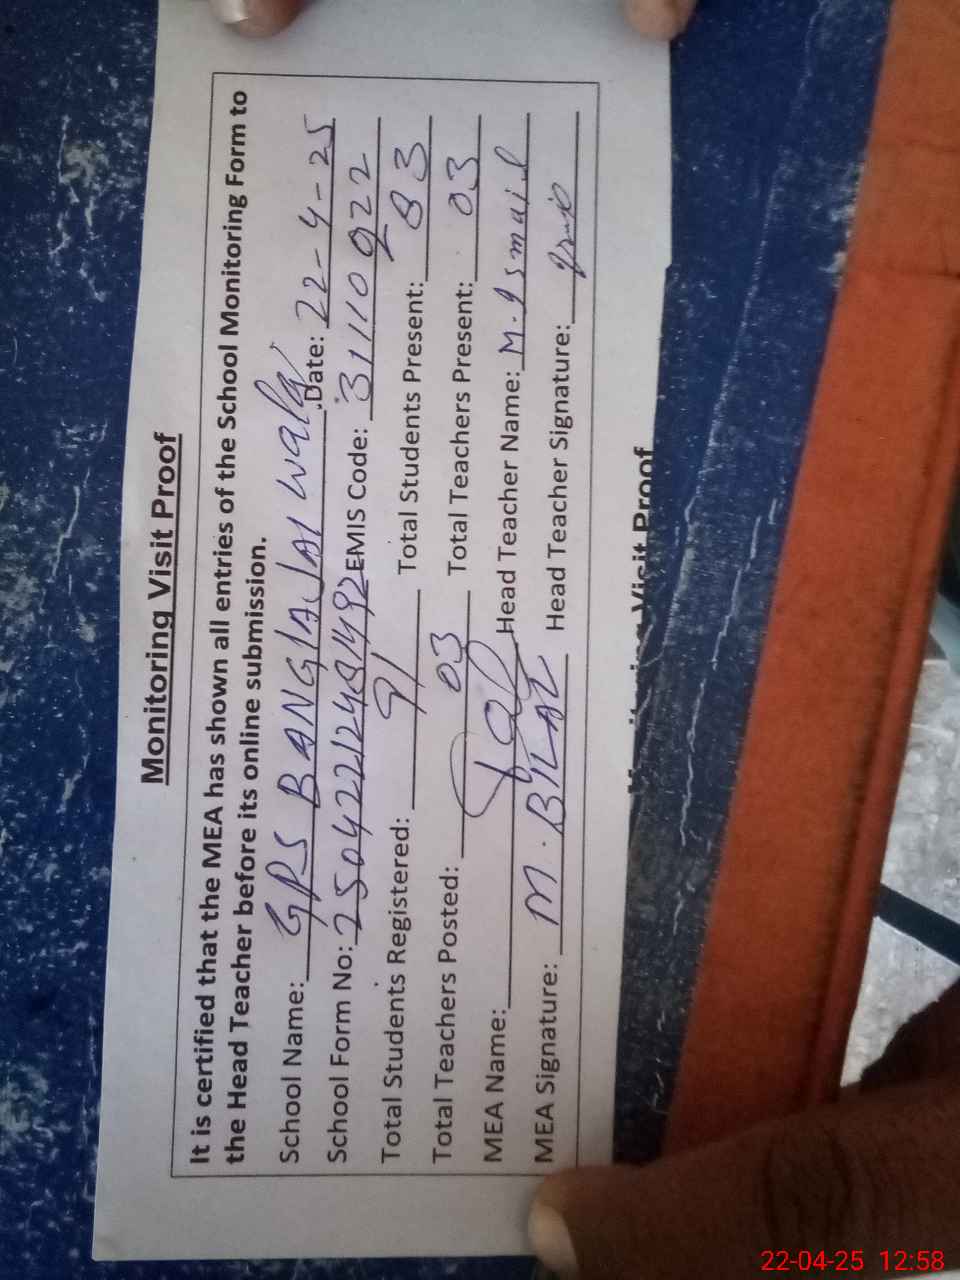 Monitoring Visit Proof
It is certified that the MEA has shown all entries of the School Monitoring Form to
the Head Teacher before its online submission.
School Name: GPS BANGIAJAI wala Date: 22-4-25
School Form No: 250422122481492 EMIS Code: 31110922
Total Students Registered: 91 Total Students Present: 83
Total Teachers Posted: 03 Total Teachers Present: 03
MEA Name: Head Teacher Name: M. Ismail
MEA Signature: M. BILAL Head Teacher Signature:
Visit Proof
22-04-25 12:58